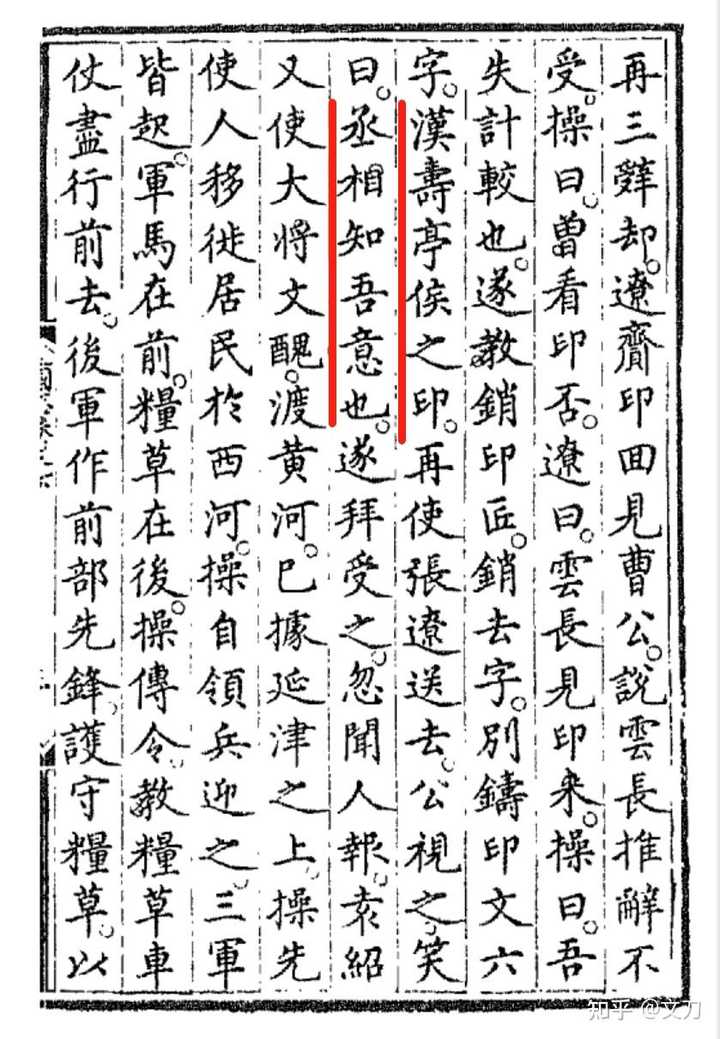 再三辤却。遼齎印囬見曹公。說雲長推辭不
受。操曰。曽看印否。遼曰。雲長見印来。操曰。吾
失計較也。遂教銷印匠。銷去字。別鑄印文六
字。漢壽亭侯之印。再使張遼送去。公視之。笑
曰。丞相知吾意也。遂拜受之。忽聞人報。袁紹
又使大將文醜。渡黃河。已據延津之上。操先
使人移徙居民於西河。操自領兵迎之。三軍
皆起。軍馬在前。糧草在後。操傳令。教糧草車
仗盡行前去。後軍作前部先鋒。護守糧草。以
知乎 @文刀